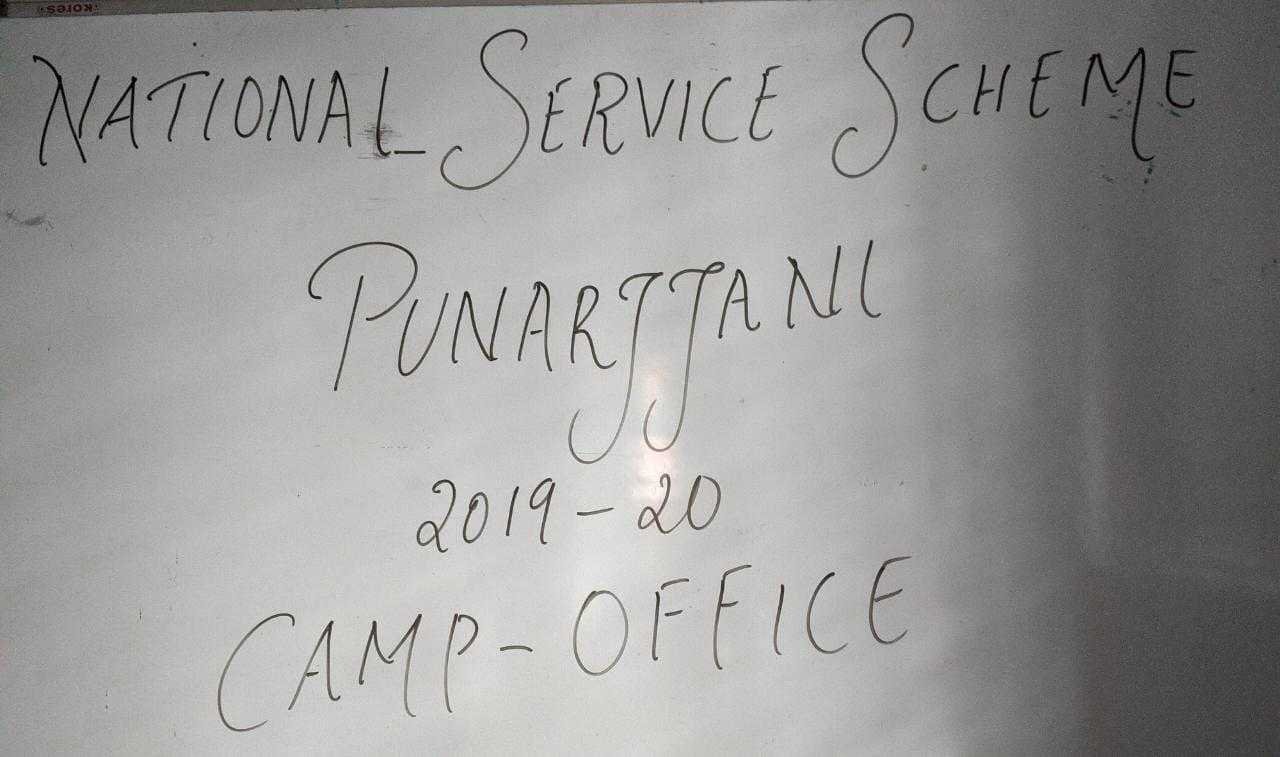 Kores
NATIONAL SERVICE SCHEME
PUNARJJANI
2019-20
CAMP-OFFICE